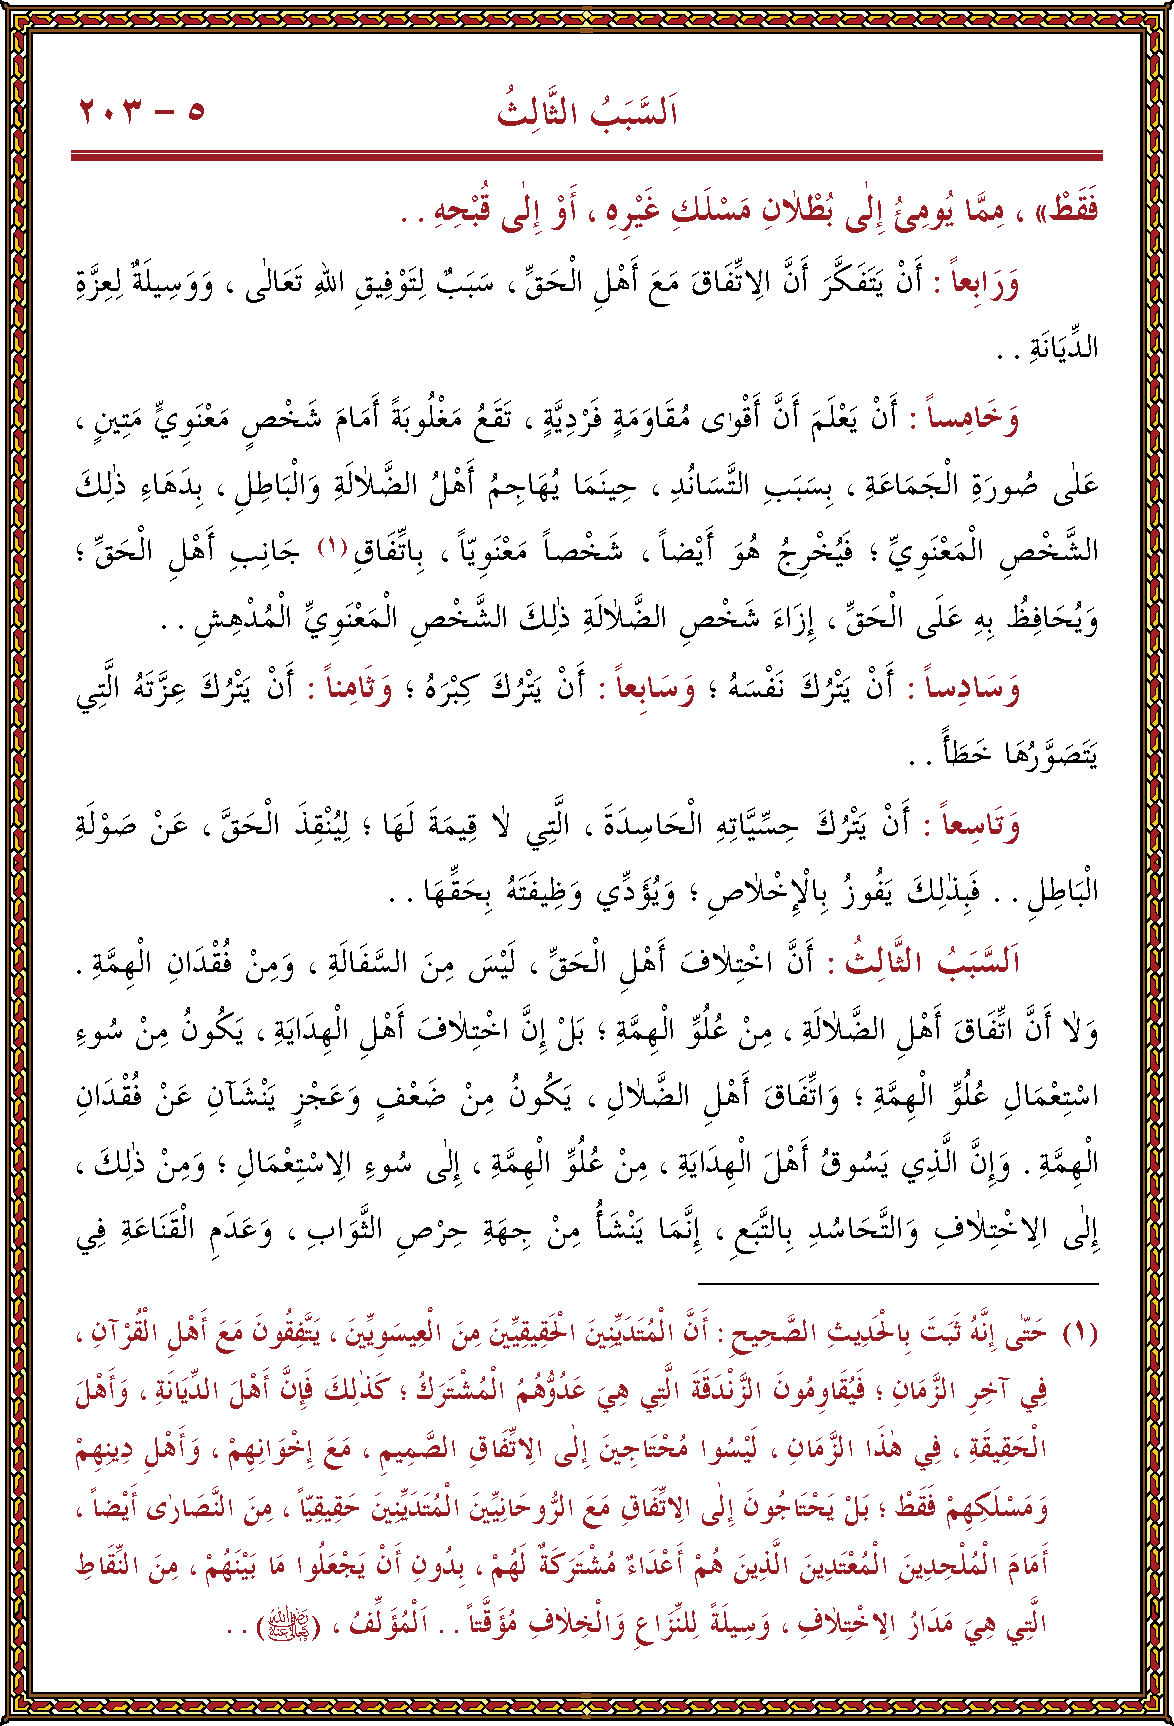 اَلسَّبَبُ الثَّالِثُ ٥ - ٢٠٣
فَقَطْ» ، مِمَّا يُومِئُ إِلٰى بُطْلَانِ مَسْلَكِ غَيْرِهِ ، أَوْ إِلٰى قُبْحِهِ . .
وَرَابِعاً : أَنْ يَتَفَكَّرَ أَنَّ الِاتِّفَاقَ مَعَ أَهْلِ الْحَقِّ ، سَبَبٌ لِتَوْفِيقِ اللهِ تَعَالٰى ، وَوَسِيلَةٌ لِعِزَّةِ
الدِّيَانَةِ . .
وَخَامِساً : أَنْ يَعْلَمَ أَنَّ أَقْوٰى مُقَاوَمَةٍ فَرْدِيَّةٍ ، تَقَعُ مَغْلُوبَةً أَمَامَ شَخْصٍ مَعْنَوِيٍّ مَتِينٍ ،
عَلٰى صُورَةِ الْجَمَاعَةِ ، بِسَبَبِ التَّسَانُدِ ، حِينَمَا يُهَاجِمُ أَهْلُ الضَّلَالَةِ وَالْبَاطِلِ ، بِدَهَاءِ ذٰلِكَ
الشَّخْصِ الْمَعْنَوِيِّ ؛ فَيُخْرِجُ هُوَ أَيْضاً ، شَخْصاً مَعْنَوِيّاً ، بِاتِّفَاقِ (١) جَانِبِ أَهْلِ الْحَقِّ ؛
وَيُحَافِظُ بِهِ عَلَى الْحَقِّ ، إِزَاءَ شَخْصِ الضَّلَالَةِ ذٰلِكَ الشَّخْصِ الْمَعْنَوِيِّ الْمُدْهِشِ . .
وَسَادِساً : أَنْ يَتْرُكَ نَفْسَهُ ؛ وَسَابِعاً : أَنْ يَتْرُكَ كِبْرَهُ ؛ وَثَامِناً : أَنْ يَتْرُكَ عِزَّتَهُ الَّتِي
يَتَصَوَّرُهَا خَطَأً . .
وَتَاسِعاً : أَنْ يَتْرُكَ حِسِّيَّاتِهِ الْحَاسِدَةَ ، الَّتِي لَا قِيمَةَ لَهَا ؛ لِيُنْقِذَ الْحَقَّ ، عَنْ صَوْلَةِ
الْبَاطِلِ . . فَبِذٰلِكَ يَفُوزُ بِالْإِخْلَاصِ ؛ وَيُؤَدِّي وَظِيفَتَهُ بِحَقِّهَا . .
اَلسَّبَبُ الثَّالِثُ : أَنَّ اخْتِلَافَ أَهْلِ الْحَقِّ ، لَيْسَ مِنَ السَّفَالَةِ ، وَمِنْ فُقْدَانِ الْهِمَّةِ .
وَلَا أَنَّ اتِّفَاقَ أَهْلِ الضَّلَالَةِ ، مِنْ عُلُوِّ الْهِمَّةِ ؛ بَلْ إِنَّ اخْتِلَافَ أَهْلِ الْهِدَايَةِ ، يَكُونُ مِنْ سُوءِ
اسْتِعْمَالِ عُلُوِّ الْهِمَّةِ ؛ وَاتِّفَاقَ أَهْلِ الضَّلَالِ ، يَكُونُ مِنْ ضَعْفٍ وَعَجْزٍ يَنْشَآنِ عَنْ فُقْدَانِ
الْهِمَّةِ . وَإِنَّ الَّذِي يَسُوقُ أَهْلَ الْهِدَايَةِ ، مِنْ عُلُوِّ الْهِمَّةِ ، إِلٰى سُوءِ الِاسْتِعْمَالِ ؛ وَمِنْ ذٰلِكَ ،
إِلٰى الِاخْتِلَافِ وَالتَّحَاسُدِ بِالتَّبَعِ ، إِنَّمَا يَنْشَأُ مِنْ جِهَةِ حِرْصِ الثَّوَابِ ، وَعَدَمِ الْقَنَاعَةِ فِي
(١) حَتّٰى إِنَّهُ ثَبَتَ بِالْحَدِيثِ الصَّحِيحِ : أَنَّ الْمُتَدَيِّنِينَ الْحَقِيقِيِّينَ مِنَ الْعِيسَوِيِّينَ ، يَتَّفِقُونَ مَعَ أَهْلِ الْقُرْآنِ ،
فِي آخِرِ الزَّمَانِ ؛ فَيُقَاوِمُونَ الزَّنْدَقَةَ الَّتِي هِيَ عَدُوُّهُمُ الْمُشْتَرَكُ ؛ كَذٰلِكَ فَإِنَّ أَهْلَ الدِّيَانَةِ ، وَأَهْلَ
الْحَقِيقَةِ ، فِي هٰذَا الزَّمَانِ ، لَيْسُوا مُحْتَاجِينَ إِلٰى الِاتِّفَاقِ الصَّمِيمِ ، مَعَ إِخْوَانِهِمْ ، وَأَهْلِ دِينِهِمْ
وَمَسْلَكِهِمْ فَقَطْ ؛ بَلْ يَحْتَاجُونَ إِلٰى الِاتِّفَاقِ مَعَ الرُّوحَانِيِّينَ الْمُتَدَيِّنِينَ حَقِيقِيّاً ، مِنَ النَّصَارٰى أَيْضاً ،
أَمَامَ الْمُلْحِدِينَ الْمُعْتَدِينَ الَّذِينَ هُمْ أَعْدَاءٌ مُشْتَرَكَةٌ لَهُمْ ، بِدُونِ أَنْ يَجْعَلُوا مَا بَيْنَهُمْ ، مِنَ النِّقَاطِ
الَّتِي هِيَ مَدَارُ الِاخْتِلَافِ ، وَسِيلَةً لِلنِّزَاعِ وَالْخِلَافِ مُؤَقَّتاً . . اَلْمُؤَلِّفُ ، (رضي الله عنه) . .